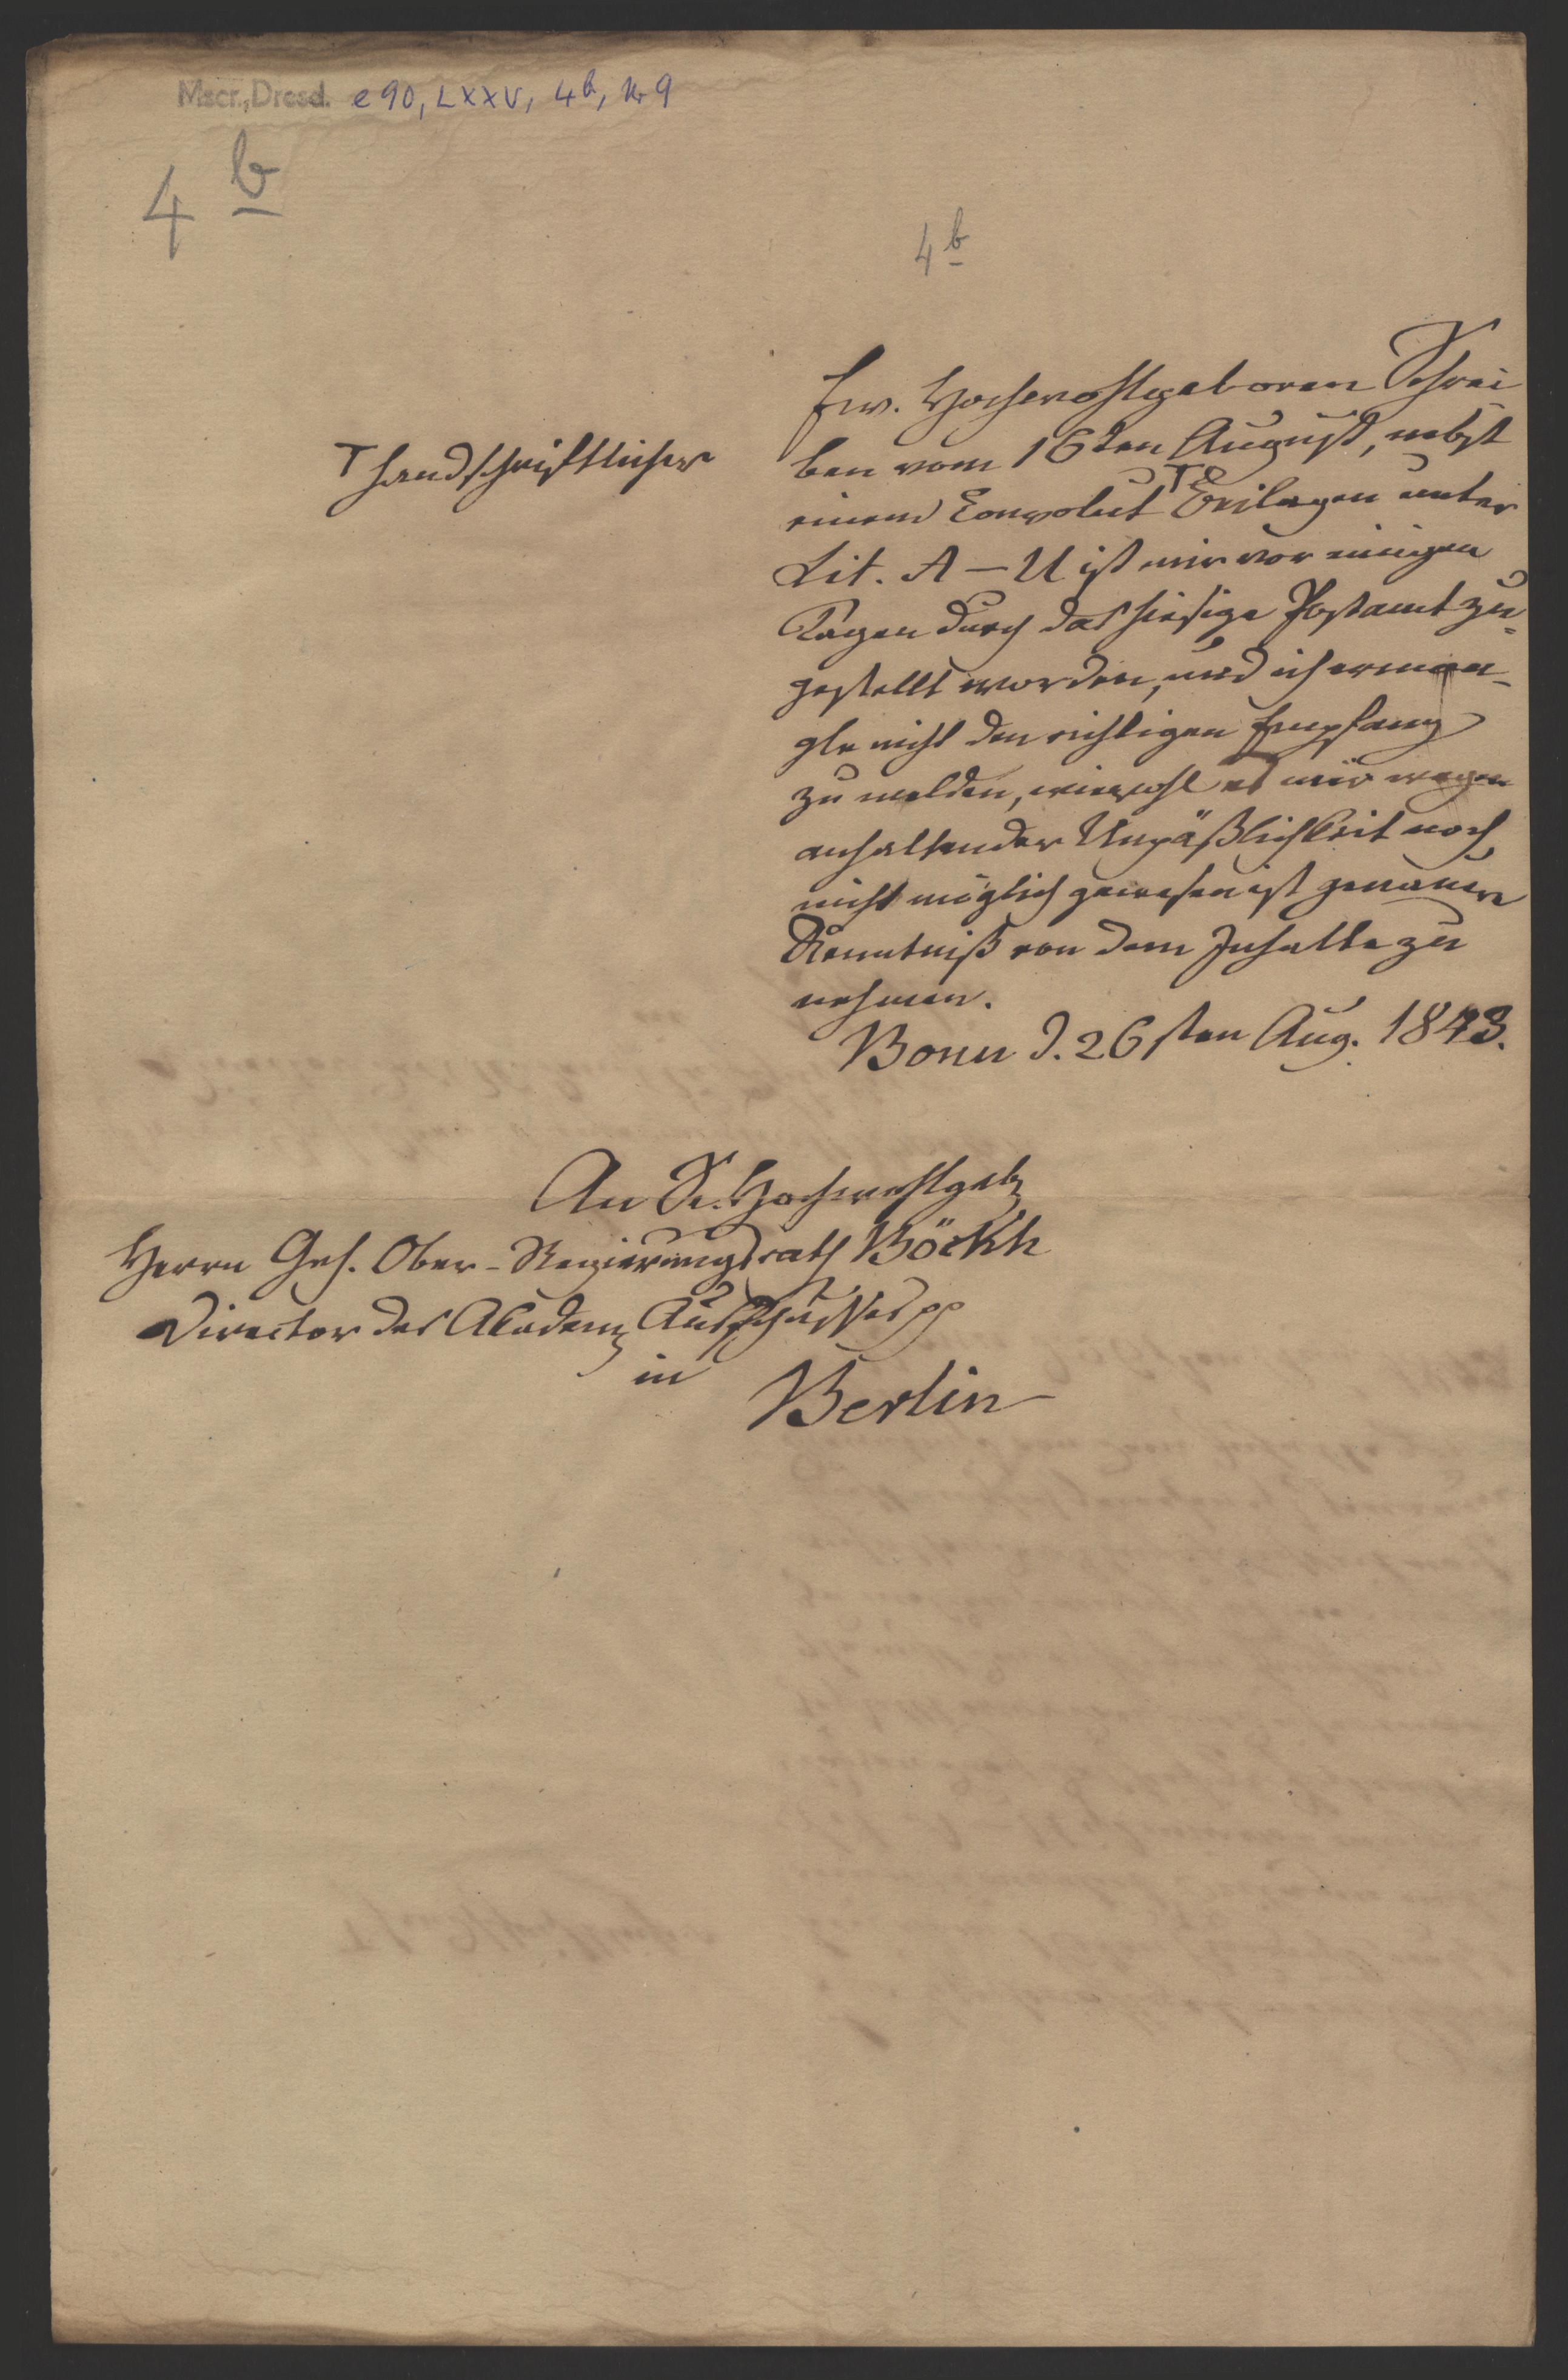 Mscr. Dresd. e 90, LXXV, 4b, Nr 9
4 b
4 b
Ew. Hochwohlgeboren Schrei
ben vom 16ten August, nebst
⊤ handschriftlicher
einem Convolut ⊤ Beilagen unter
Lit. A – U ist mir vor einigen
Tagen durch das hiesige Postamt zu-
gestellt worden, und ich erman-
gle nicht den richtigen Empfang
zu melden, wiewohl es mir wegen
anhaltender Unpäßlichkeit noch
nicht möglich gewesen ist genauere
Kenntniß von dem Inhalte zu
nehmen.
Bonn d. 26sten Aug. 1843.
An Se. Hochwohlgeb
Herrn Geh. Ober-Regierungsrath Böckh
Director des Akadem Ausschusses pp
in
Berlin